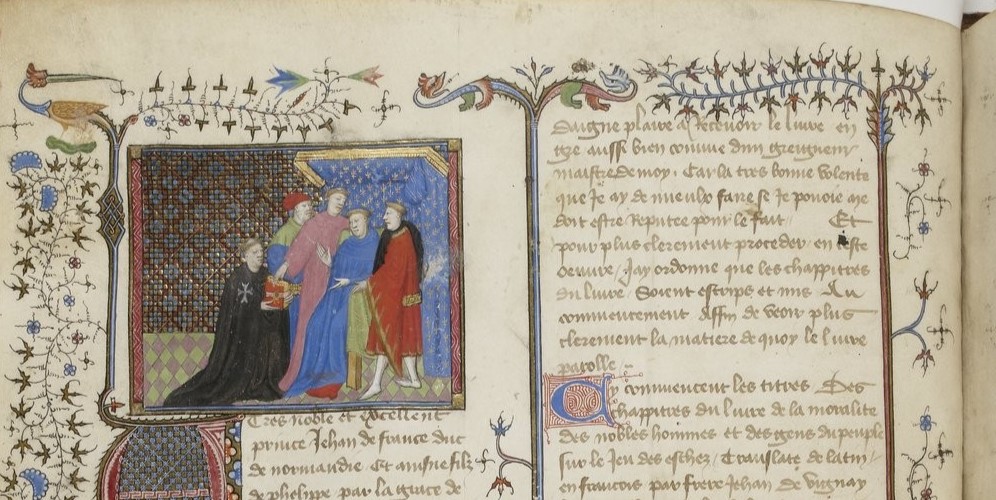 Tres noble et excellent
prince Jehan de france duc
de normandie. Et ainsne filz
de phelippe par la grace de
daigne plaire a recevoir le livre en
gre aussi bien comme dun greigneur
maistre de moy. Car la tres bonne volente
que Je ay de mieulx faire se Je povoie me
doit estre reputee pour le fait. Et
pour plus clerement proceder en ceste
oeuvre / Jay ordonne que les chappitres
du livre. Soient escrips et mis Au
commencement Affin de veoir plus
clerement la matiere de quoy le livre
parolle
Cy commencent les titres Des
chappitres du livre de la moralite
des nobles hommes et des gens du peuple
sur le Jeu des eschez. Translate de latin
en francois par frere Jehan de vignay